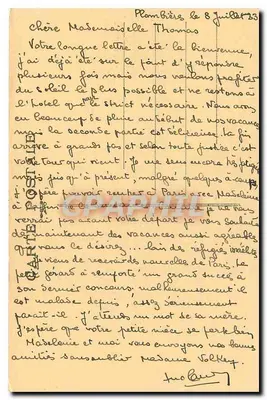 Plombières le 8 Juillet 53
Chère Mademoiselle Thomas
Votre longue lettre a été la bienvenue,
j'ai déjà été sur le point d'y répondre
plusieurs fois mais nous voulons profiter
du soleil le plus possible et ne restons à
l'hôtel que le strict nécessaire. Nous avons
eu beaucoup de pluie au début de nos vacances
mais la seconde partie est délicieuse. La fin
arrive à grands pas et selon toute justice c'est
votre tour qui vient. Je me sens encore
jusqu'à présent, malgré quelques
pouvoir rentrer à Paris avec Madeleine
verrai pas avant votre départ je vous souhaite
dès maintenant des vacances aussi agréables
que vous le désirez... loin des réfugiés
viens de recevoir des nouvelles de Paris, le
petit Gérard a remporté un grand succès à
son dernier concours malheureusement il
est malade depuis, assez sérieusement
paraît-il. J'attends un mot de sa mère.
J'espère que votre petite nièce se porte bien
Madeleine et moi vous envoyons nos bonnes
amitiés sans oublier Madame
CARTE POSTALE
CPAPHIL.COM